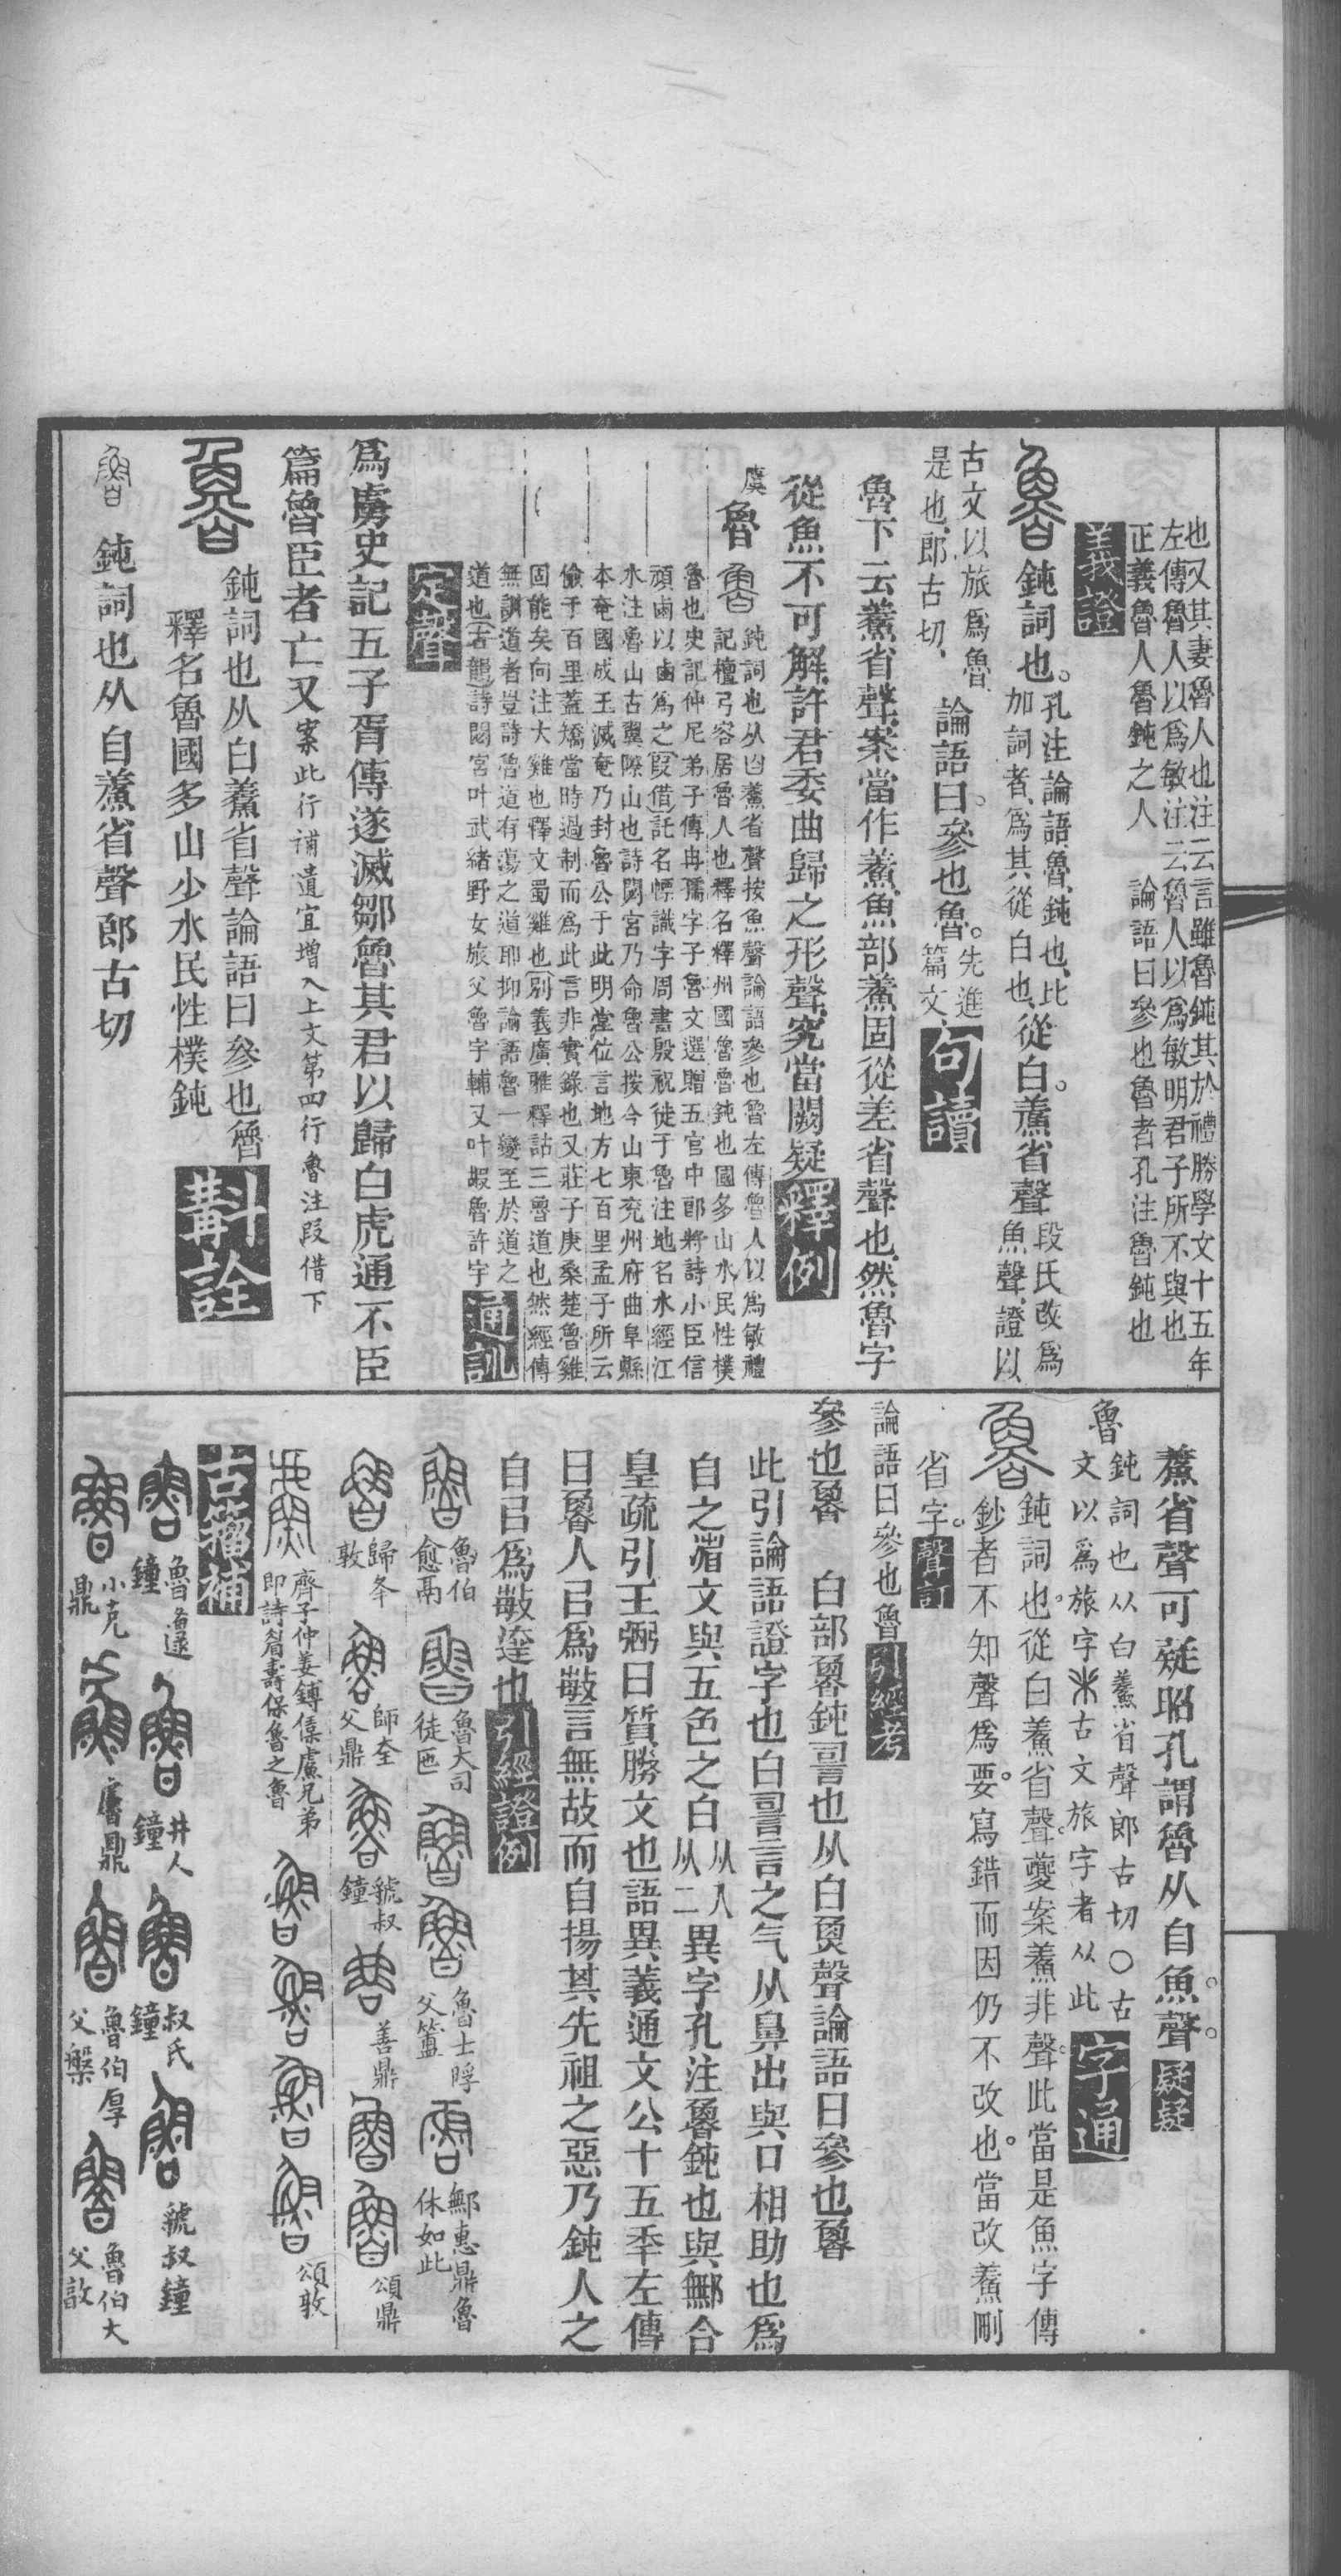 也又其妻魯人也注云言雖魯鈍其於禮勝學文十五年
左傳魯人以爲敏注云魯人以爲敏明君子所不與也
正義魯人魯鈍之人　論語曰參也魯者孔注魯鈍也
義證
鈍詞也。孔注論語魯鈍也比
加詞者爲其從白也從白。䰼省聲段氏改爲
魚聲證以
古文以旅爲魯
是也郎古切論語曰。參也魯。先進
篇文句讀
魯下云䰼省聲案當作䰼魚部䰼固從差省聲也然魯字
從魚不可解許君委曲歸之形聲究當闕疑釋例
虞魯
鈍詞也从白䰼省聲按魚聲論語參也魯左傳魯人以爲敏禮
記檀弓容居魯人也釋名釋州國魯魯鈍也國多山水民性樸
魯也史記仲尼弟子傳冉孺字子魯文選贈五官中郎將詩小臣信
頑鹵以鹵爲之叚借託名幖識字周書殷祝徒于魯注地名水經江
水注魯山古翼際山也詩閟宮乃命魯公按今山東兖州府曲阜縣
本奄國成王滅奄乃封魯公于此明堂位言地方七百里孟子所云
儉于百里蓋矯當時過制而爲此言非實錄也又莊子庚桑楚魯雞
固能矣向注大雞也釋文蜀雞也別義廣雅釋詁三魯道也然經傳
無訓道者豈詩魯道有蕩之道耶抑論語魯一變至於道之
道也古韻詩閟宮叶武緒野女旅父魯宇輔又叶嘏魯許宇通訓
定聲
爲虜史記五子胥傳遂滅鄒魯其君以歸白虎通不臣
篇魯臣者亡又案此行補遺宜增入上文第四行魯注叚借下
鈍詞也从白䰼省聲論語曰參也魯
釋名魯國多山少水民性樸鈍斠詮
鈍詞也从自䰼省聲郎古切
䰼省聲可疑昭孔謂魯从自魚。聲。疑疑
魯鈍詞也从白䰼省聲郎古切〇古
文以爲旅字古文旅字者从此字通
鈍詞也。從白䰼省聲。夔案䰼非聲。此當是魚字傳
鈔者不知聲爲要。寫錯而因仍不改也。當改䰼刪
省字。聲訂
論語曰參也魯引經考
參也魯　白部魯鈍詞也从白䰼聲論語曰參也魯
此引論語證字也白䛐言之气从鼻出與口相助也爲
自之渻文與五色之白从入
从二異字孔注魯鈍也與鄦合
皇疏引王弼曰質勝文也語異義通文公十五年左傳
曰魯人㠯爲敏言無故而自揚其先祖之惡乃鈍人之
自㠯爲敏達也引經證例
魯伯
愈鬲
魯大司
徒匜
魯士𥈊
父簠
鄦惠鼎魯
休如此
歸夆
敦
師㚅
父鼎
虢叔
鐘
善鼎
頌鼎
齊子仲姜鎛𠍙盧兄弟
即詩眉壽保魯之魯
頌敦
古籀補
魯邍
鐘
井人
鐘
叔氏
鐘
虢叔鐘
小克
鼎
䧹鼎
魯伯厚
父槃
魯伯大
父敦